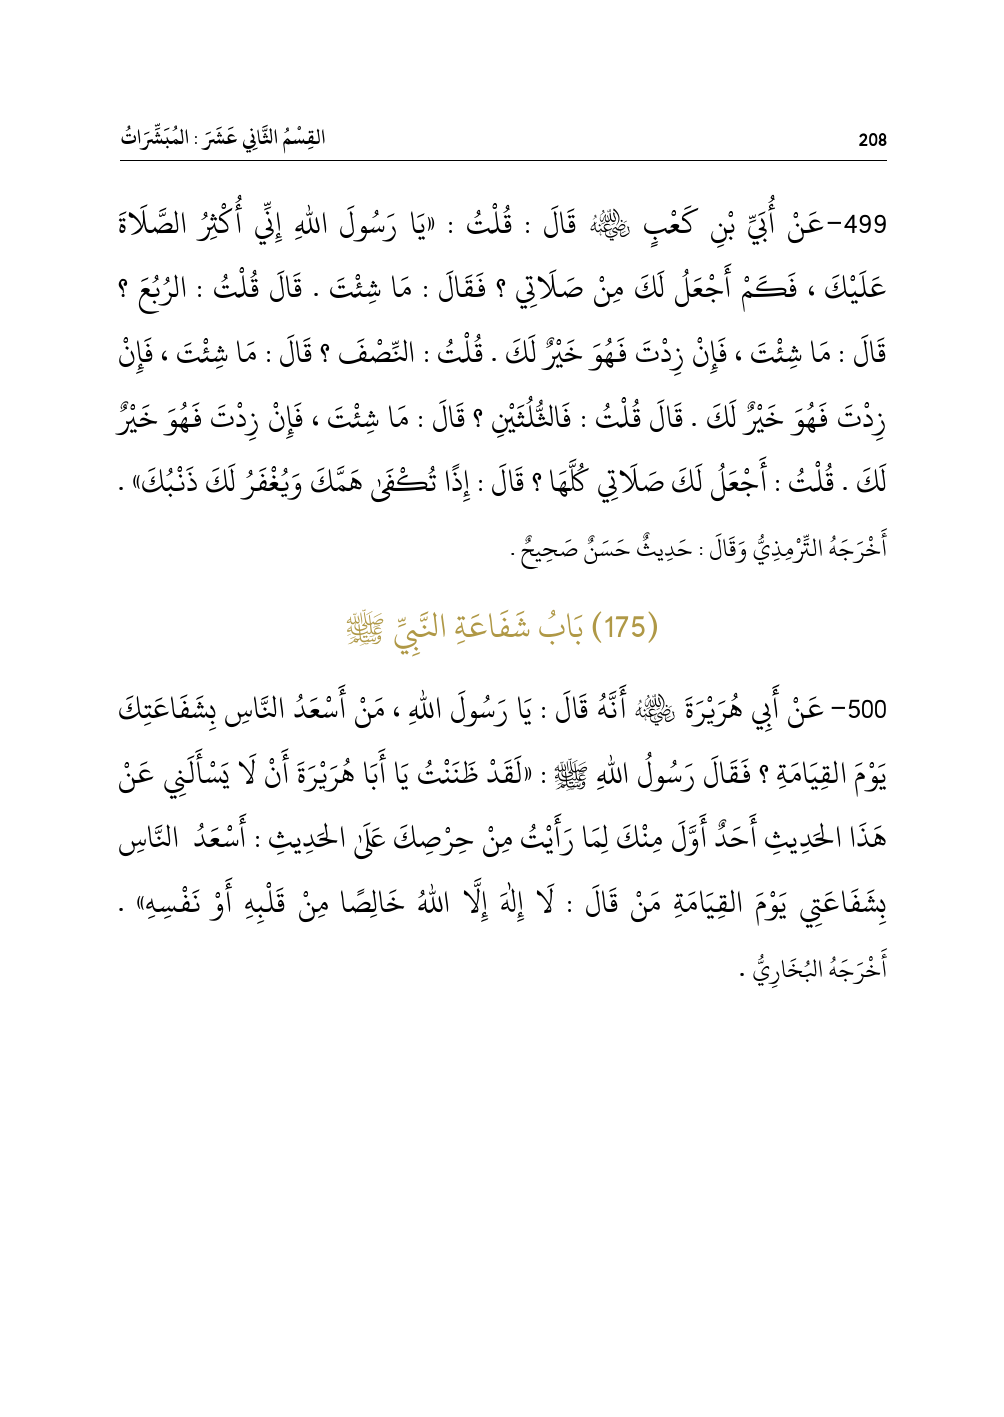 208
القِسْمُ الثَّانِي عَشَرَ : المُبَشِّرَاتُ
499-عَنْ أُبَيِّ بْنِ كَعْبٍ رضي الله عنه قَالَ : قُلْتُ : «يَا رَسُولَ اللهِ إِنِّي أُكْثِرُ الصَّلَاةَ
عَلَيْكَ ، فَكَمْ أَجْعَلُ لَكَ مِنْ صَلَاتِي ؟ فَقَالَ : مَا شِئْتَ . قَالَ قُلْتُ : الرُبُعَ ؟
قَالَ : مَا شِئْتَ ، فَإِنْ زِدْتَ فَهُوَ خَيْرٌ لَكَ . قُلْتُ : النِّصْفَ ؟ قَالَ : مَا شِئْتَ ، فَإِنْ
زِدْتَ فَهُوَ خَيْرٌ لَكَ . قَالَ قُلْتُ : فَالثُّلُثَيْنِ ؟ قَالَ : مَا شِئْتَ ، فَإِنْ زِدْتَ فَهُوَ خَيْرٌ
لَكَ . قُلْتُ : أَجْعَلُ لَكَ صَلَاتِي كُلَّهَا ؟ قَالَ : إِذًا تُكْفَىٰ هَمَّكَ وَيُغْفَرُ لَكَ ذَنْبُكَ» .
أَخْرَجَهُ التِّرْمِذِيُّ وَقَالَ : حَدِيثٌ حَسَنٌ صَحِيحٌ .
(175) بَابُ شَفَاعَةِ النَّبِيِّ ﷺ
500- عَنْ أَبِي هُرَيْرَةَ رضي الله عنه أَنَّهُ قَالَ : يَا رَسُولَ اللهِ ، مَنْ أَسْعَدُ النَّاسِ بِشَفَاعَتِكَ
يَوْمَ القِيَامَةِ ؟ فَقَالَ رَسُولُ اللهِ ﷺ : «لَقَدْ ظَنَنْتُ يَا أَبَا هُرَيْرَةَ أَنْ لَا يَسْأَلَنِي عَنْ
هَذَا الحَدِيثِ أَحَدٌ أَوَّلَ مِنْكَ لِمَا رَأَيْتُ مِنْ حِرْصِكَ عَلَىٰ الحَدِيثِ : أَسْعَدُ النَّاسِ
بِشَفَاعَتِي يَوْمَ القِيَامَةِ مَنْ قَالَ : لَا إِلٰهَ إِلَّا اللهُ خَالِصًا مِنْ قَلْبِهِ أَوْ نَفْسِهِ» .
أَخْرَجَهُ البُخَارِيُّ .